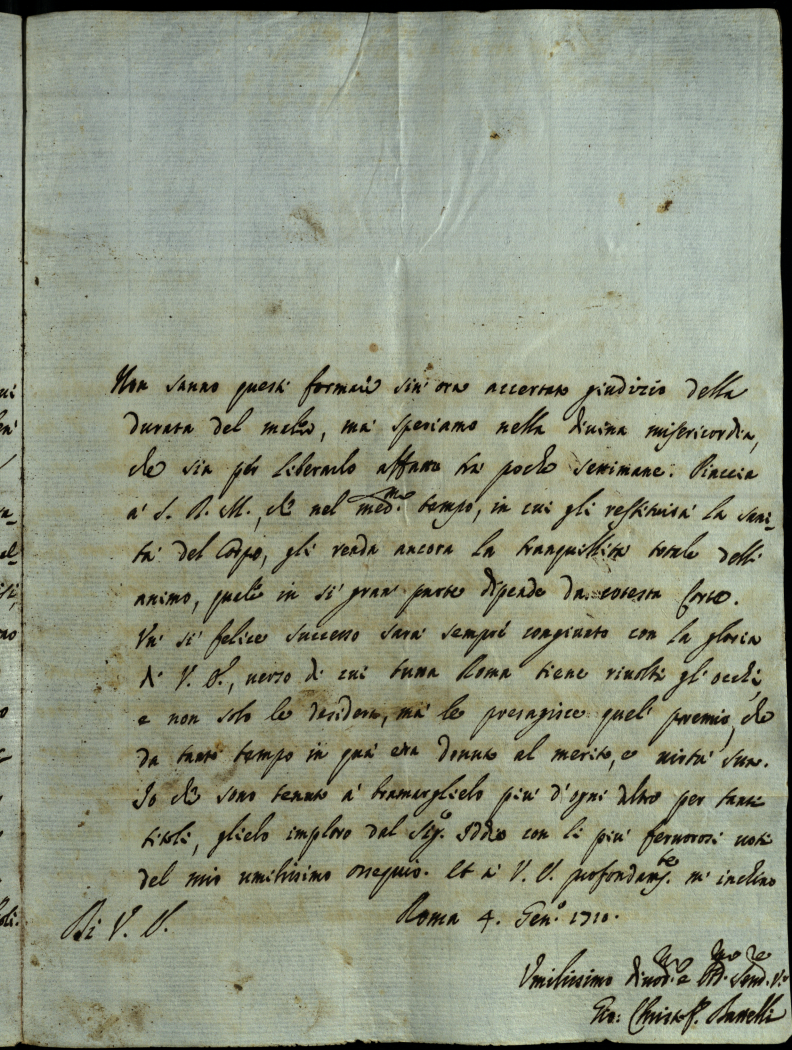 Non sanno questi formare sin' ora accertato giudizio della
durata del male, mà speriamo nella divina misericordia,
che sia per liberarlo affatto trà poche settimane. Piaccia
à S. D. M., che nel med.mo tempo, in cui gli restituirà la sani-
tà del Corpo, gli renda ancora la tranquillità totale dell'
animo, quale in sì gran parte dipende da cotesta Corte.
Un sì felice successo sarà sempre congiunto con la gloria
di V. S., verso di cui tutta Roma tiene rivolti gl' occhi,
e non solo le desidera, mà le presagisce quel premio, che
da tanto tempo in quà era dovuto al merito, e virtù sua.
Io che sono tenuto à bramarglielo più d'ogni altro per tanti
titoli, glielo imploro dal Sig.e Iddio con li più fervorosi voti
del mio umilissimo ossequio. Et à V. S. profondam.te m' inchino
Di V. S. Roma 4. Gen.o 1710.
Umilissimo divot.mo e Obb.mo Serv.re V.o
Gio: Christof.